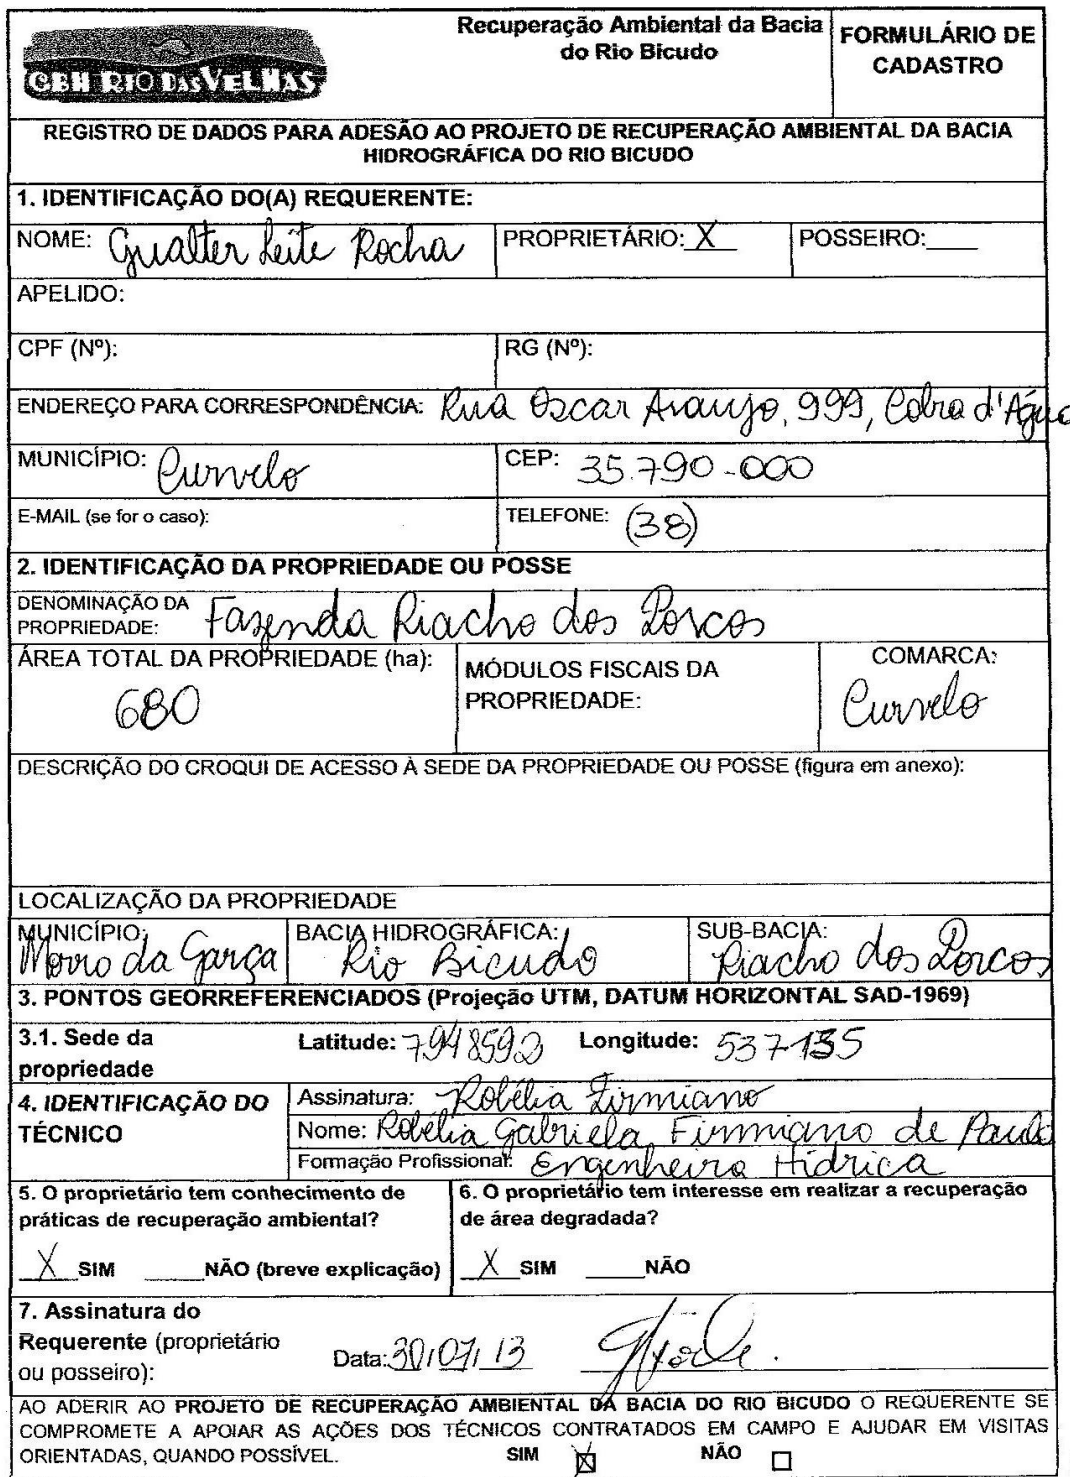 CBH RIO DAS VELHAS
Recuperação Ambiental da Bacia do Rio Bicudo
FORMULÁRIO DE CADASTRO
REGISTRO DE DADOS PARA ADESÃO AO PROJETO DE RECUPERAÇÃO AMBIENTAL DA BACIA
HIDROGRÁFICA DO RIO BICUDO
1. IDENTIFICAÇÃO DO(A) REQUERENTE:
NOME: Gualter Leite Rocha PROPRIETÁRIO: X POSSEIRO:____
APELIDO:
CPF (Nº): RG (Nº):
ENDEREÇO PARA CORRESPONDÊNCIA: Rua Oscar Araujo, 999, Cobra d'Água
MUNICÍPIO: Curvelo CEP: 35.790-000
E-MAIL (se for o caso): TELEFONE: (38)
2. IDENTIFICAÇÃO DA PROPRIEDADE OU POSSE
DENOMINAÇÃO DA
PROPRIEDADE: Fazenda Riacho dos Porcos
ÁREA TOTAL DA PROPRIEDADE (ha): 680
MÓDULOS FISCAIS DA
PROPRIEDADE:
COMARCA:
Curvelo
DESCRIÇÃO DO CROQUI DE ACESSO À SEDE DA PROPRIEDADE OU POSSE (figura em anexo):
LOCALIZAÇÃO DA PROPRIEDADE
MUNICÍPIO: Morro da Garça
BACIA HIDROGRÁFICA: Rio Bicudo
SUB-BACIA: Riacho dos Porcos
3. PONTOS GEORREFERENCIADOS (Projeção UTM, DATUM HORIZONTAL SAD-1969)
3.1. Sede da
propriedade
Latitude: 7948592 Longitude: 537135
4. IDENTIFICAÇÃO DO
TÉCNICO
Assinatura: Robélia Firmiano
Nome: Robélia Gabriela Firmiano de Paula
Formação Profissional: Engenheira Hídrica
5. O proprietário tem conhecimento de
práticas de recuperação ambiental?
X SIM _____NÃO (breve explicação)
6. O proprietário tem interesse em realizar a recuperação
de área degradada?
X SIM _____NÃO
7. Assinatura do
Requerente (proprietário
ou posseiro):
Data: 30/07/13
AO ADERIR AO PROJETO DE RECUPERAÇÃO AMBIENTAL DA BACIA DO RIO BICUDO O REQUERENTE SE
COMPROMETE A APOIAR AS AÇÕES DOS TÉCNICOS CONTRATADOS EM CAMPO E AJUDAR EM VISITAS
ORIENTADAS, QUANDO POSSÍVEL. SIM ☒ NÃO ☐